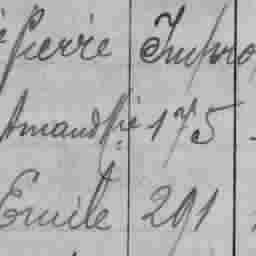 Pierre Impro
Amand fre 175
Emile 291